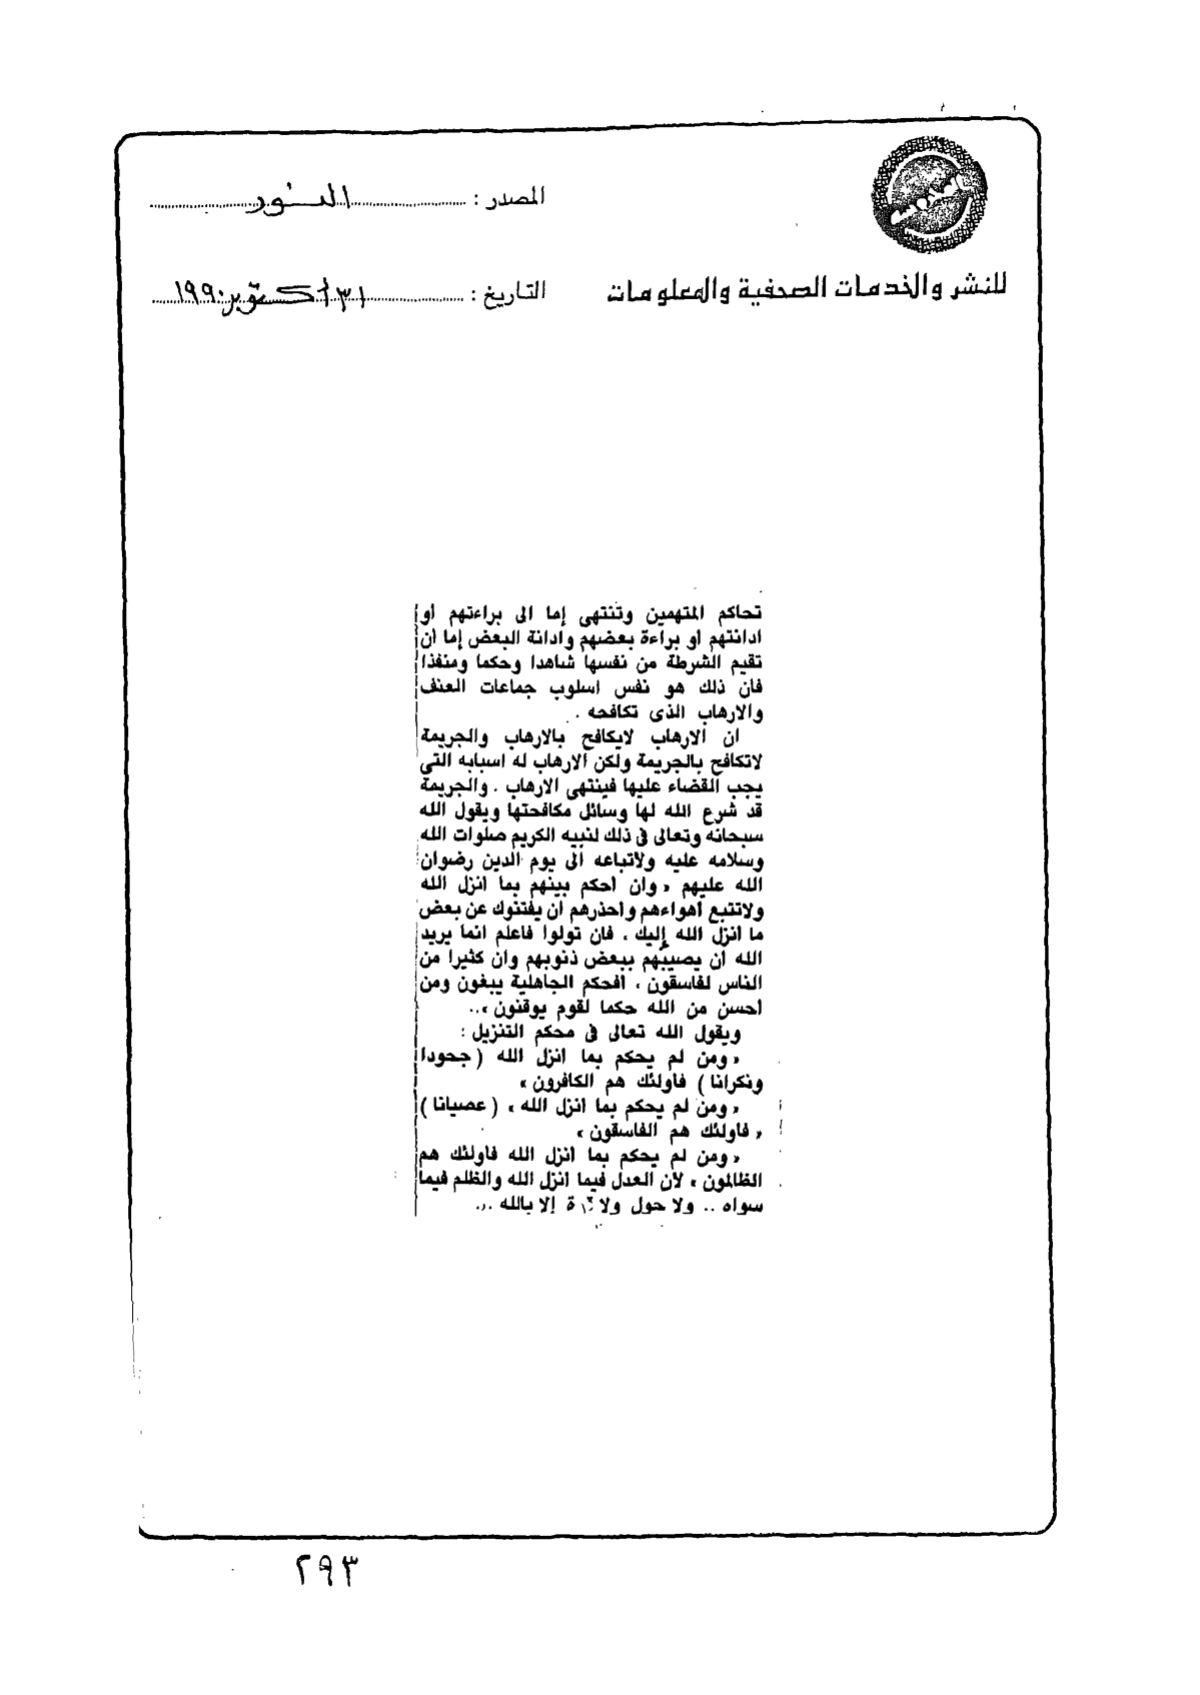 المصدر : النور
للنشر والخدمات الصحفية والمعلومات
التاريخ : ٣١ أكتوبر ١٩٩٠
تحاكم المتهمين وتنتهى إما الى براءتهم او
ادانتهم او براءة بعضهم وادانة البعض إما ان
تقيم الشرطة من نفسها شاهدا وحكما ومنفذا
فان ذلك هو نفس اسلوب جماعات العنف
والارهاب الذى تكافحه .
ان الارهاب لايكافح بالارهاب والجريمة
لاتكافح بالجريمة ولكن الارهاب له اسبابه التى
يجب القضاء عليها فينتهى الارهاب . والجريمة
قد شرع الله لها وسائل مكافحتها ويقول الله
سبحانه وتعالى فى ذلك لنبيه الكريم صلوات الله
وسلامه عليه ولاتباعه الى يوم الدين رضوان
الله عليهم « وان احكم بينهم بما انزل الله
ولاتتبع اهواءهم واحذرهم ان يفتنوك عن بعض
ما انزل الله إليك ، فان تولوا فاعلم انما يريد
الله ان يصيبهم ببعض ذنوبهم وان كثيرا من
الناس لفاسقون ، افحكم الجاهلية يبغون ومن
احسن من الله حكما لقوم يوقنون »..
ويقول الله تعالى فى محكم التنزيل :
« ومن لم يحكم بما انزل الله ( جحودا
ونكرانا ) فاولئك هم الكافرون »
« ومن لم يحكم بما انزل الله » ( عصيانا )
« فاولئك هم الفاسقون »
« ومن لم يحكم بما انزل الله فاولئك هم
الظالمون » لان العدل فيما انزل الله والظلم فيما
سواه .. ولا حول ولا قوة إلا بالله ..
٢٩٣